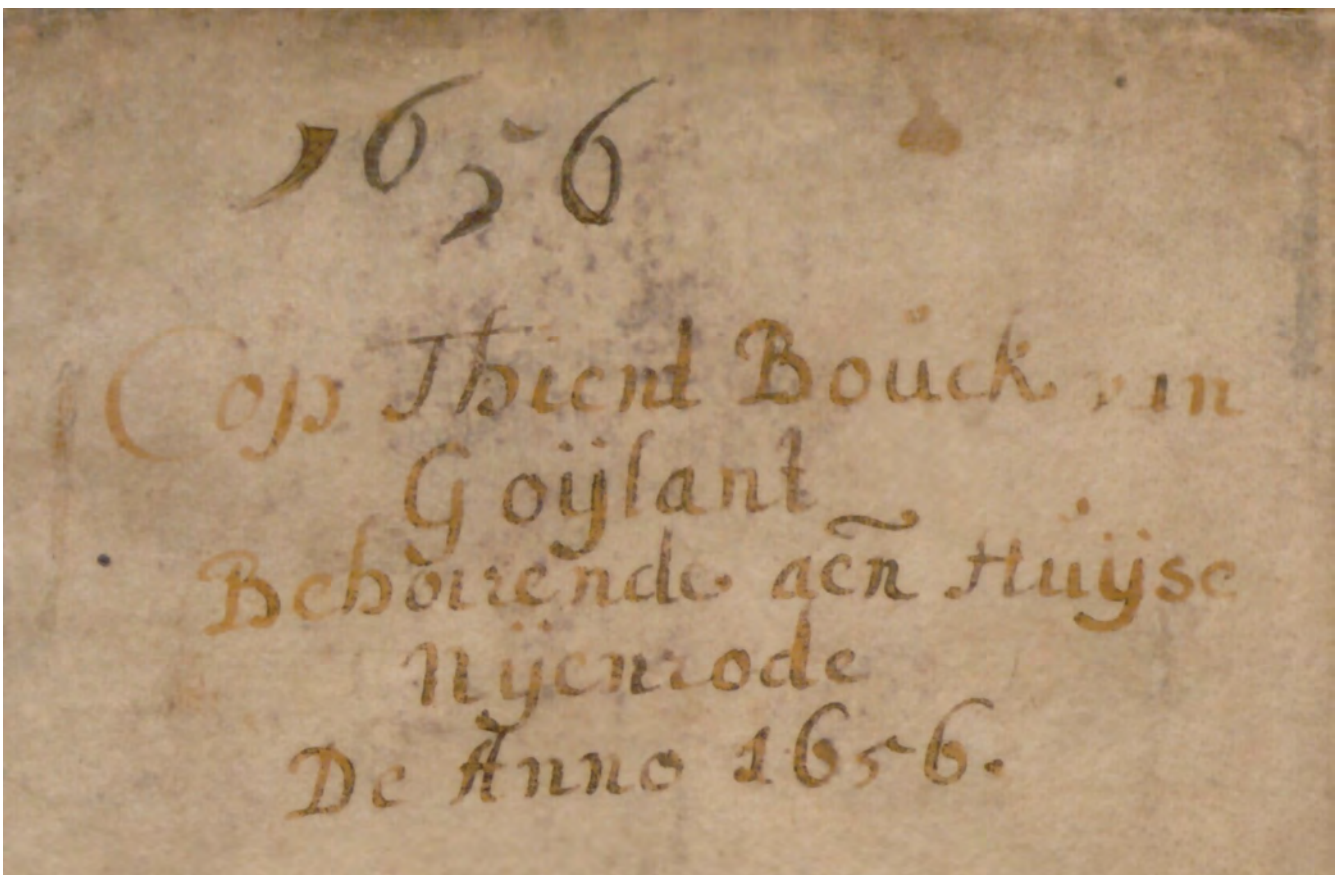 1656
Cop Thient Boúck van
Goÿlant
Behoirende aen Huÿse
Nÿenrode
De Anno 1656.